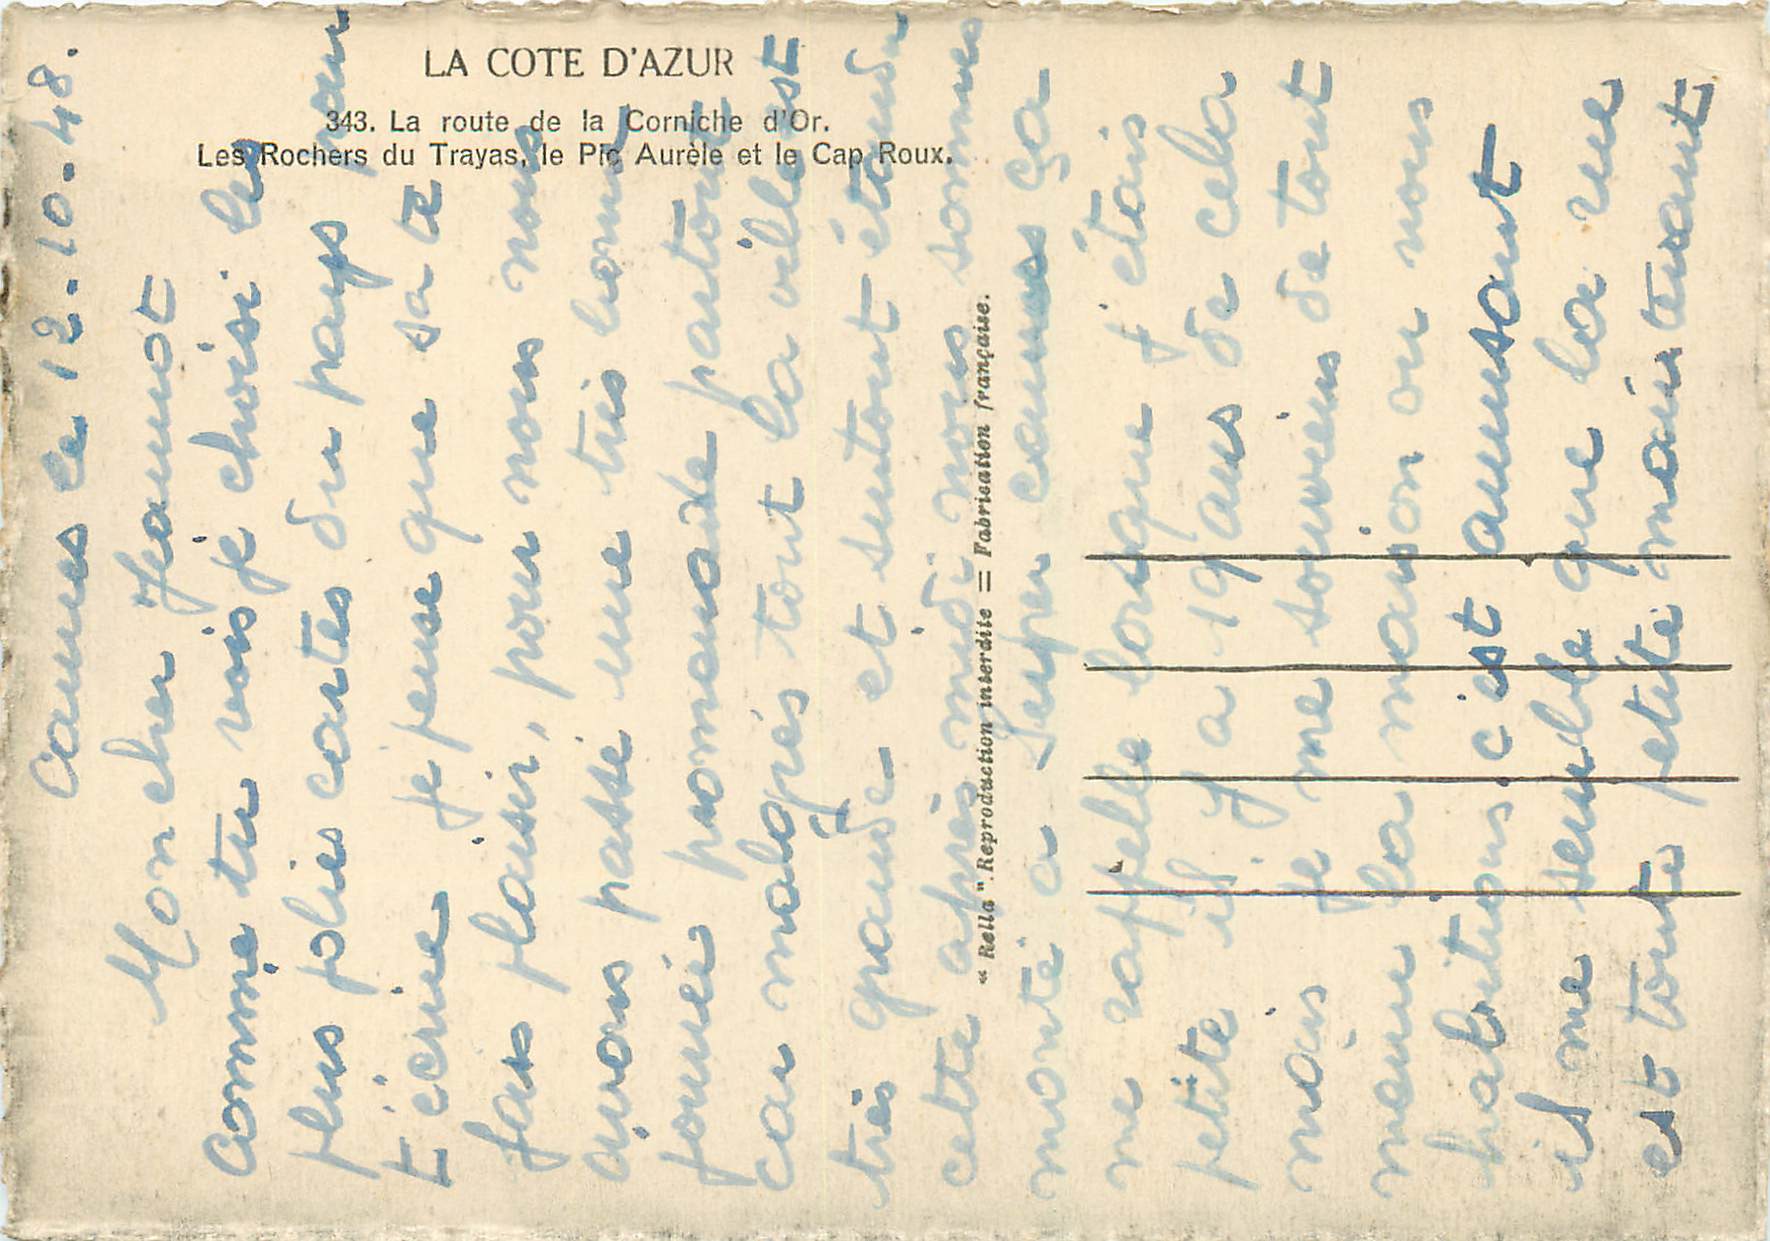 LA COTE D'AZUR
343. La route de la Corniche d'Or.
Les Rochers du Trayas, le Pic Aurèle et le Cap Roux.
"Rella". Reproduction interdite = Fabrication française.
Cannes le 12.10.48.
Mon cher Jeannot
Comme tu vois je choisi les
plus jolies cartes du pays pour
t'écrire je pense que sa te
fais plaisir, pour nous nous
avons passé une très bonne
journée promenade partout
car malgrés tout la ville est
très grande et surtout étendu
cette après midi nous sommes
monté a Super cannes ça
me rappelle lorsque j'étais
petite il y a 19 ans de cela
mais je me souviens de tout
meme la maison ou nous
habitions c'est amusant
il me semble que la rue
est toute petite maintenant